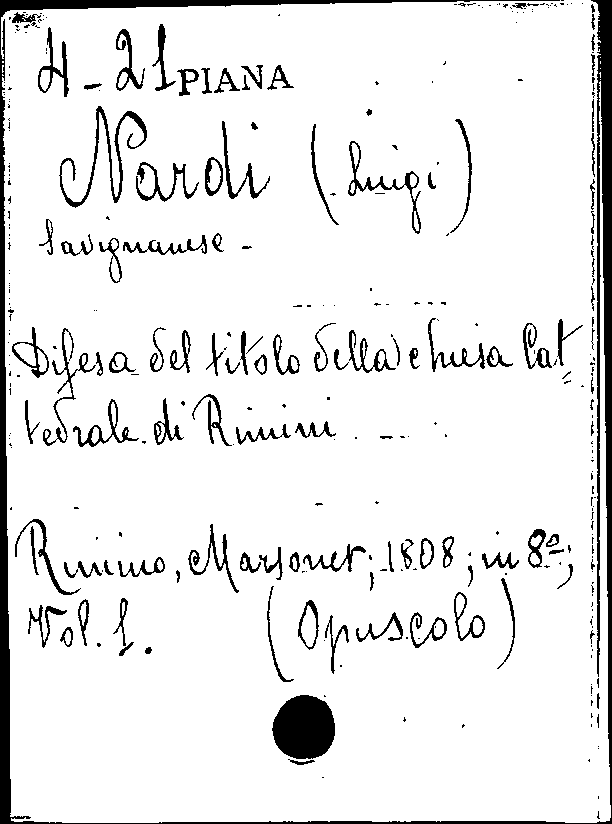 4 - 21 PIANA
Nardi (Luigi)
Savignanese -
Difesa del titolo della chiesa Cat=
tedrale di Rimini
Rimino, Marsoner; 1808; in 8º;
Vol. 1. (Opuscolo)